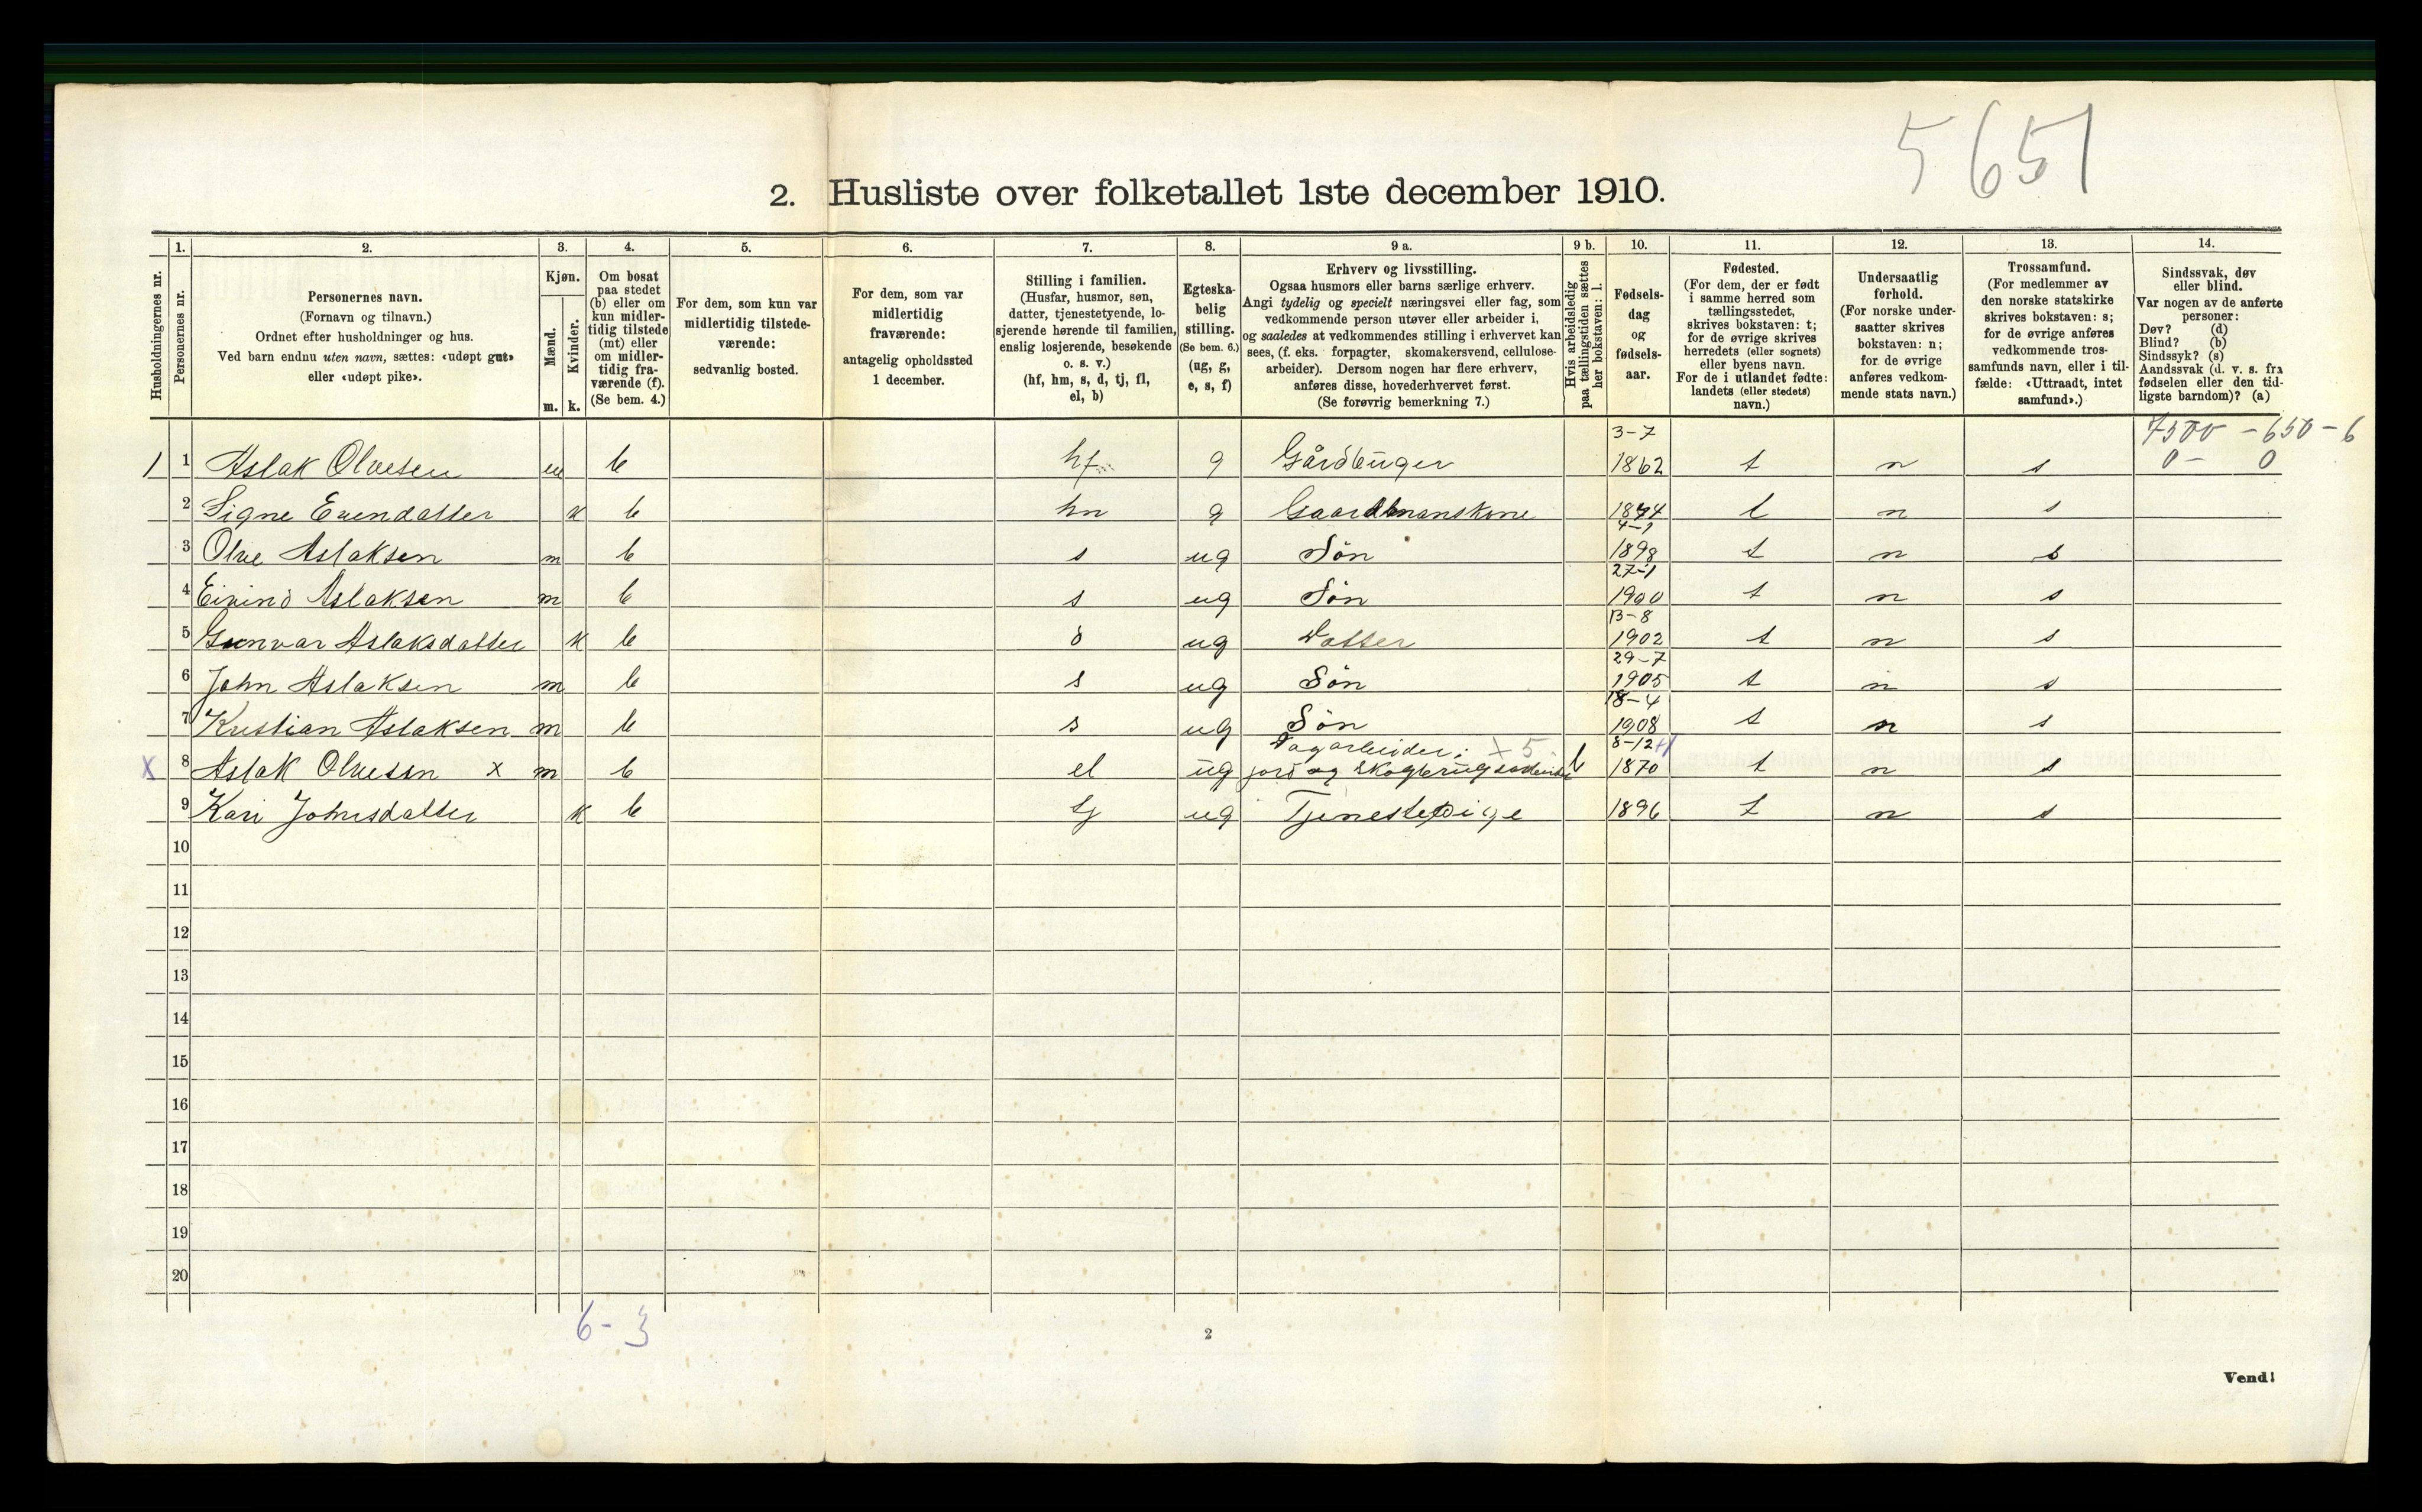 5651
2. Husliste over folketallet 1ste december 1910.
Husholdningernes nr.
1.
Personernes nr.
2.
Personernes navn.
(Fornavn og tilnavn.)
Ordnet efter husholdninger og hus.
Ved barn endnu uten navn, sættes: «udøpt gut»
eller «udøpt pike».
3.
Kjøn.
Mænd.
Kvinder.
m. k.
4.
Om bosat
paa stedet
(b) eller om
kun midler-
tidig tilstede
(mt) eller
om midler-
tidig fra-
værende (f).
(Se bem. 4.)
5.
For dem, som kun var
midlertidig tilstede-
værende:
sedvanlig bosted.
6.
For dem, som var
midlertidig
fraværende:
antagelig opholdssted
1 december.
7.
Stilling i familien.
(Husfar, husmor, søn,
datter, tjenestetyende, lo-
sjerende hørende til familien,
enslig losjerende, besøkende
o. s. v.)
(hf, hm, s, d, tj, fl,
el, b)
8.
Egteska-
belig
stilling.
(Se bem. 6.)
(ug, g,
e, s, f)
9 a.
Erhverv og livsstilling.
Ogsaa husmors eller barns særlige erhverv.
Angi tydelig og specielt næringsvei eller fag, som
vedkommende person utøver eller arbeider i,
og saaledes at vedkommendes stilling i erhvervet kan
sees, (f. eks. forpagter, skomakersvend, cellulose-
arbeider). Dersom nogen har flere erhverv,
anføres disse, hovederhvervet først.
(Se forøvrig bemerkning 7.)
9 b.
Hvis arbeidsledig
paa tællingstiden sættes
her bokstaven: l.
10.
Fødsels-
dag
og
fødsels-
aar.
11.
Fødested.
(For dem, der er født
i samme herred som
tællingsstedet,
skrives bokstaven: t;
for de øvrige skrives
herredets (eller sognets)
eller byens navn.
For de i utlandet fødte:
landets (eller stedets)
navn.)
12.
Undersaatlig
forhold.
(For norske under-
saatter skrives
bokstaven: n;
for de øvrige
anføres vedkom-
mende stats navn.)
13.
Trossamfund.
(For medlemmer av
den norske statskirke
skrives bokstaven: s;
for de øvrige anføres
vedkommende tros-
samfunds navn, eller i til-
fælde: «Uttraadt, intet
samfund».)
14.
Sindssvak, døv
eller blind.
Var nogen av de anførte
personer:
Døv? (d)
Blind? (b)
Sindssyk? (s)
Aandssvak (d. v. s. fra
fødselen eller den tid-
ligste barndom)? (a)
3-7 7500 - 650 - 6
1 1 Aslak Olvesen m b hf g Gårdbruger 1862 t n s 0 - 0
2 Signe Evendatter k b hm g Gaardmanskone 1874 t n s
4-1
3 Olve Aslaksen m b s ug Søn 1898 t n s
27-1
4 Eivind Aslaksen m b s ug Søn 1900 t n s
13-8
5 Gunvar Aslaksdatter k b d ug Datter 1902 t n s
29-7
6 John Aslaksen m b s ug Søn 1905 t n s
18-4
7 Kristian Aslaksen m b s ug Søn 1908 t n s
Dagarbeider; x 5 8-12
x 8 Aslak Olvesen x m b el ug jord og skogbrugsarbeider l 1870 t n s
9 Kari Johnsdatter k b tj ug Tjenestepige 1896 t n s
10
11
12
13
14
15
16
17
18
19
20
6 - 3
2
Vend!